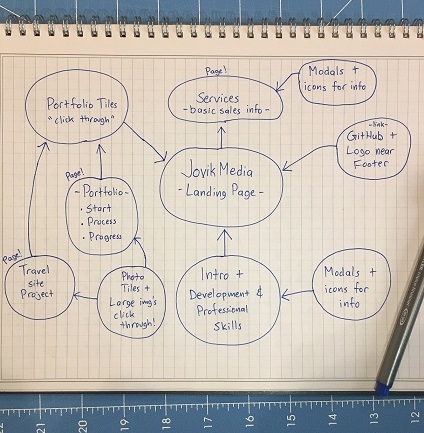 Portfolio Tiles
"click through"
Page!
Services
- basic sales info -
Modals +
icons for info
-link-
GitHub +
Logo near
Footer
Jovik Media
- Landing Page -
Page!
- Portfolio -
• Start
• Process
• Progress
Page!
Travel
site
Project
Photo
Tiles +
Large img's
click
through!
Intro +
Development &
Professional
Skills
Modals +
icons for
info
21
20
19
18
17
16
15
14
13
12